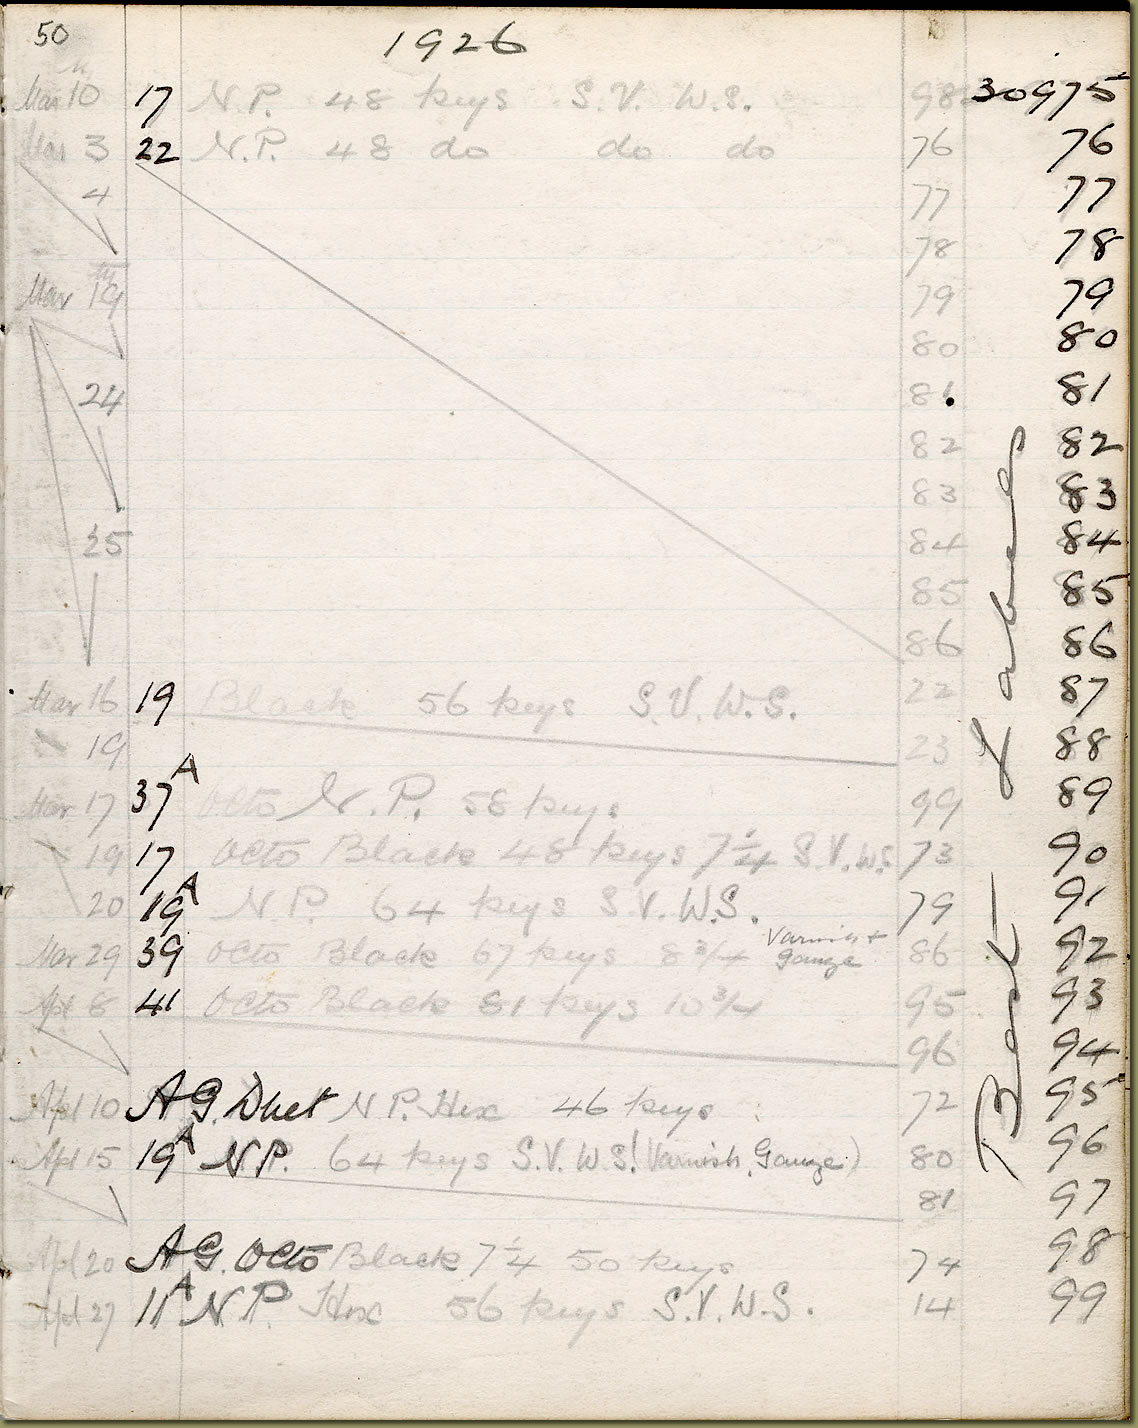 50
1926
Mar 10 17 N.P. 48 keys S.V. W.S. 98 30975
Mar 3 22 N.P. 48 do do do 76 76
4 77 77
78 78
Mar 19 79 79
80 80
24 81. 81
82 82
83 83
25 84 84
85 85
86 86
Mar 16 19 Black 56 keys S.V. W.S. 22 87
19 23 88
Mar 17 37A Octo N.P. 58 keys 99 89
19 17 Octo Black 48 keys 7¼ S.V. W.S. 73 90
20 19A N.P. 64 keys S.V. W.S. 79 91
Mar 29 39 Octo Black 67 keys 8¾ Varnish + Gauze 86 92
Apl 8 41 Octo Black 81 keys 10¾ 95 93
96 94
Apl 10 AG. Duet N.P. Hex 46 keys 72 95
Apl 15 19A N.P. 64 keys S.V. W.S. (Varnish, Gauze) 80 96
81 97
Apl 20 AG. Octo Black 7¼ 50 keys 74 98
Apl 27 11A N.P. Hex 56 keys S.V. W.S. 14 99